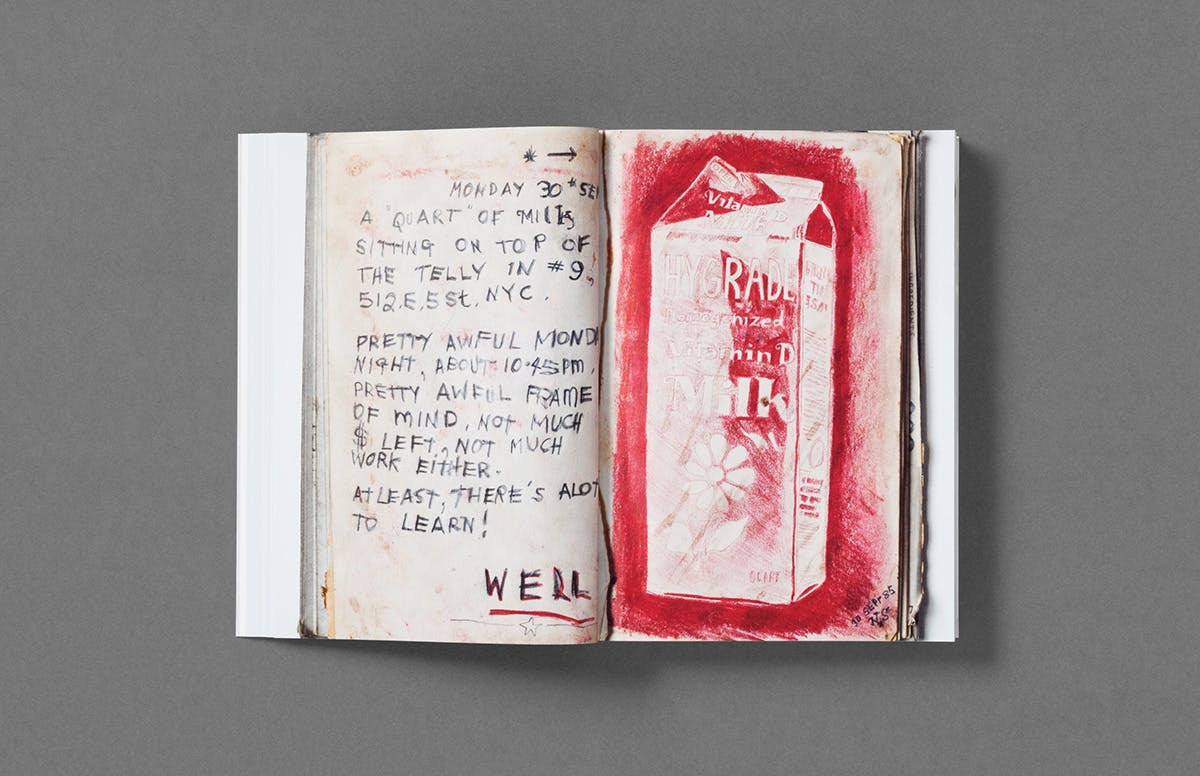 * →
MONDAY 30th SE
A "QUART" OF MILK
SITTING ON TOP OF
THE TELLY IN #9,
512.E,5 St. NYC.
PRETTY AWFUL MOND
NIGHT, ABOUT 10.45PM.
PRETTY AWFUL FRAME
OF MIND, NOT MUCH
$ LEFT, NOT MUCH
WORK EITHER.
AT LEAST, THERE'S ALOT
TO LEARN!
WELL
Vitamin D
MILK
HYGRADE
Homogenized
Vitamin D
Milk
QUART
30 SEPT 85
INGREDIENTS